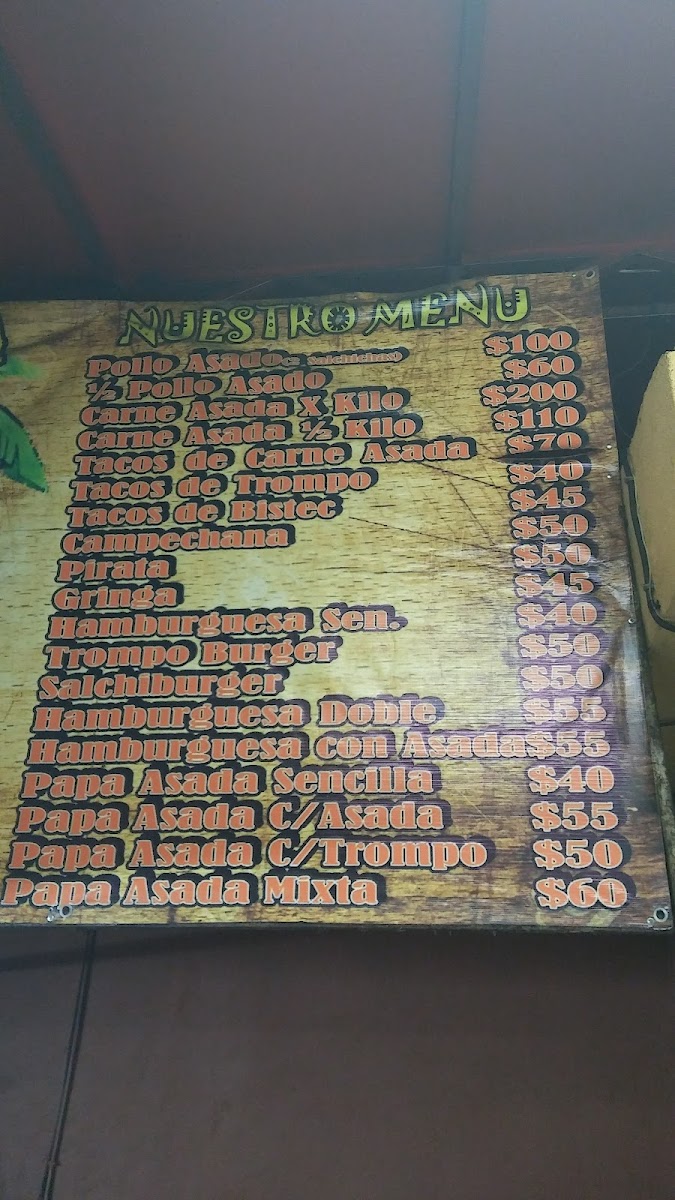 NUESTRO MENU
Pollo Asado Salchichas) $100
½ Pollo Asado $60
Carne Asada X Kilo $200
Carne Asada ½ Kilo $110
Tacos de Carne Asada $70
Tacos de Trompo $40
Tacos de Bistec $45
Campechana $50
Pirata $50
Gringa $45
Hamburguesa Sen. $40
Trompo Burger $50
Salchiburger $50
Hamburguesa Doble $55
Hamburguesa con Asada $55
Papa Asada Sencilla $40
Papa Asada C/Asada $55
Papa Asada C/Trompo $50
Papa Asada Mixta $60